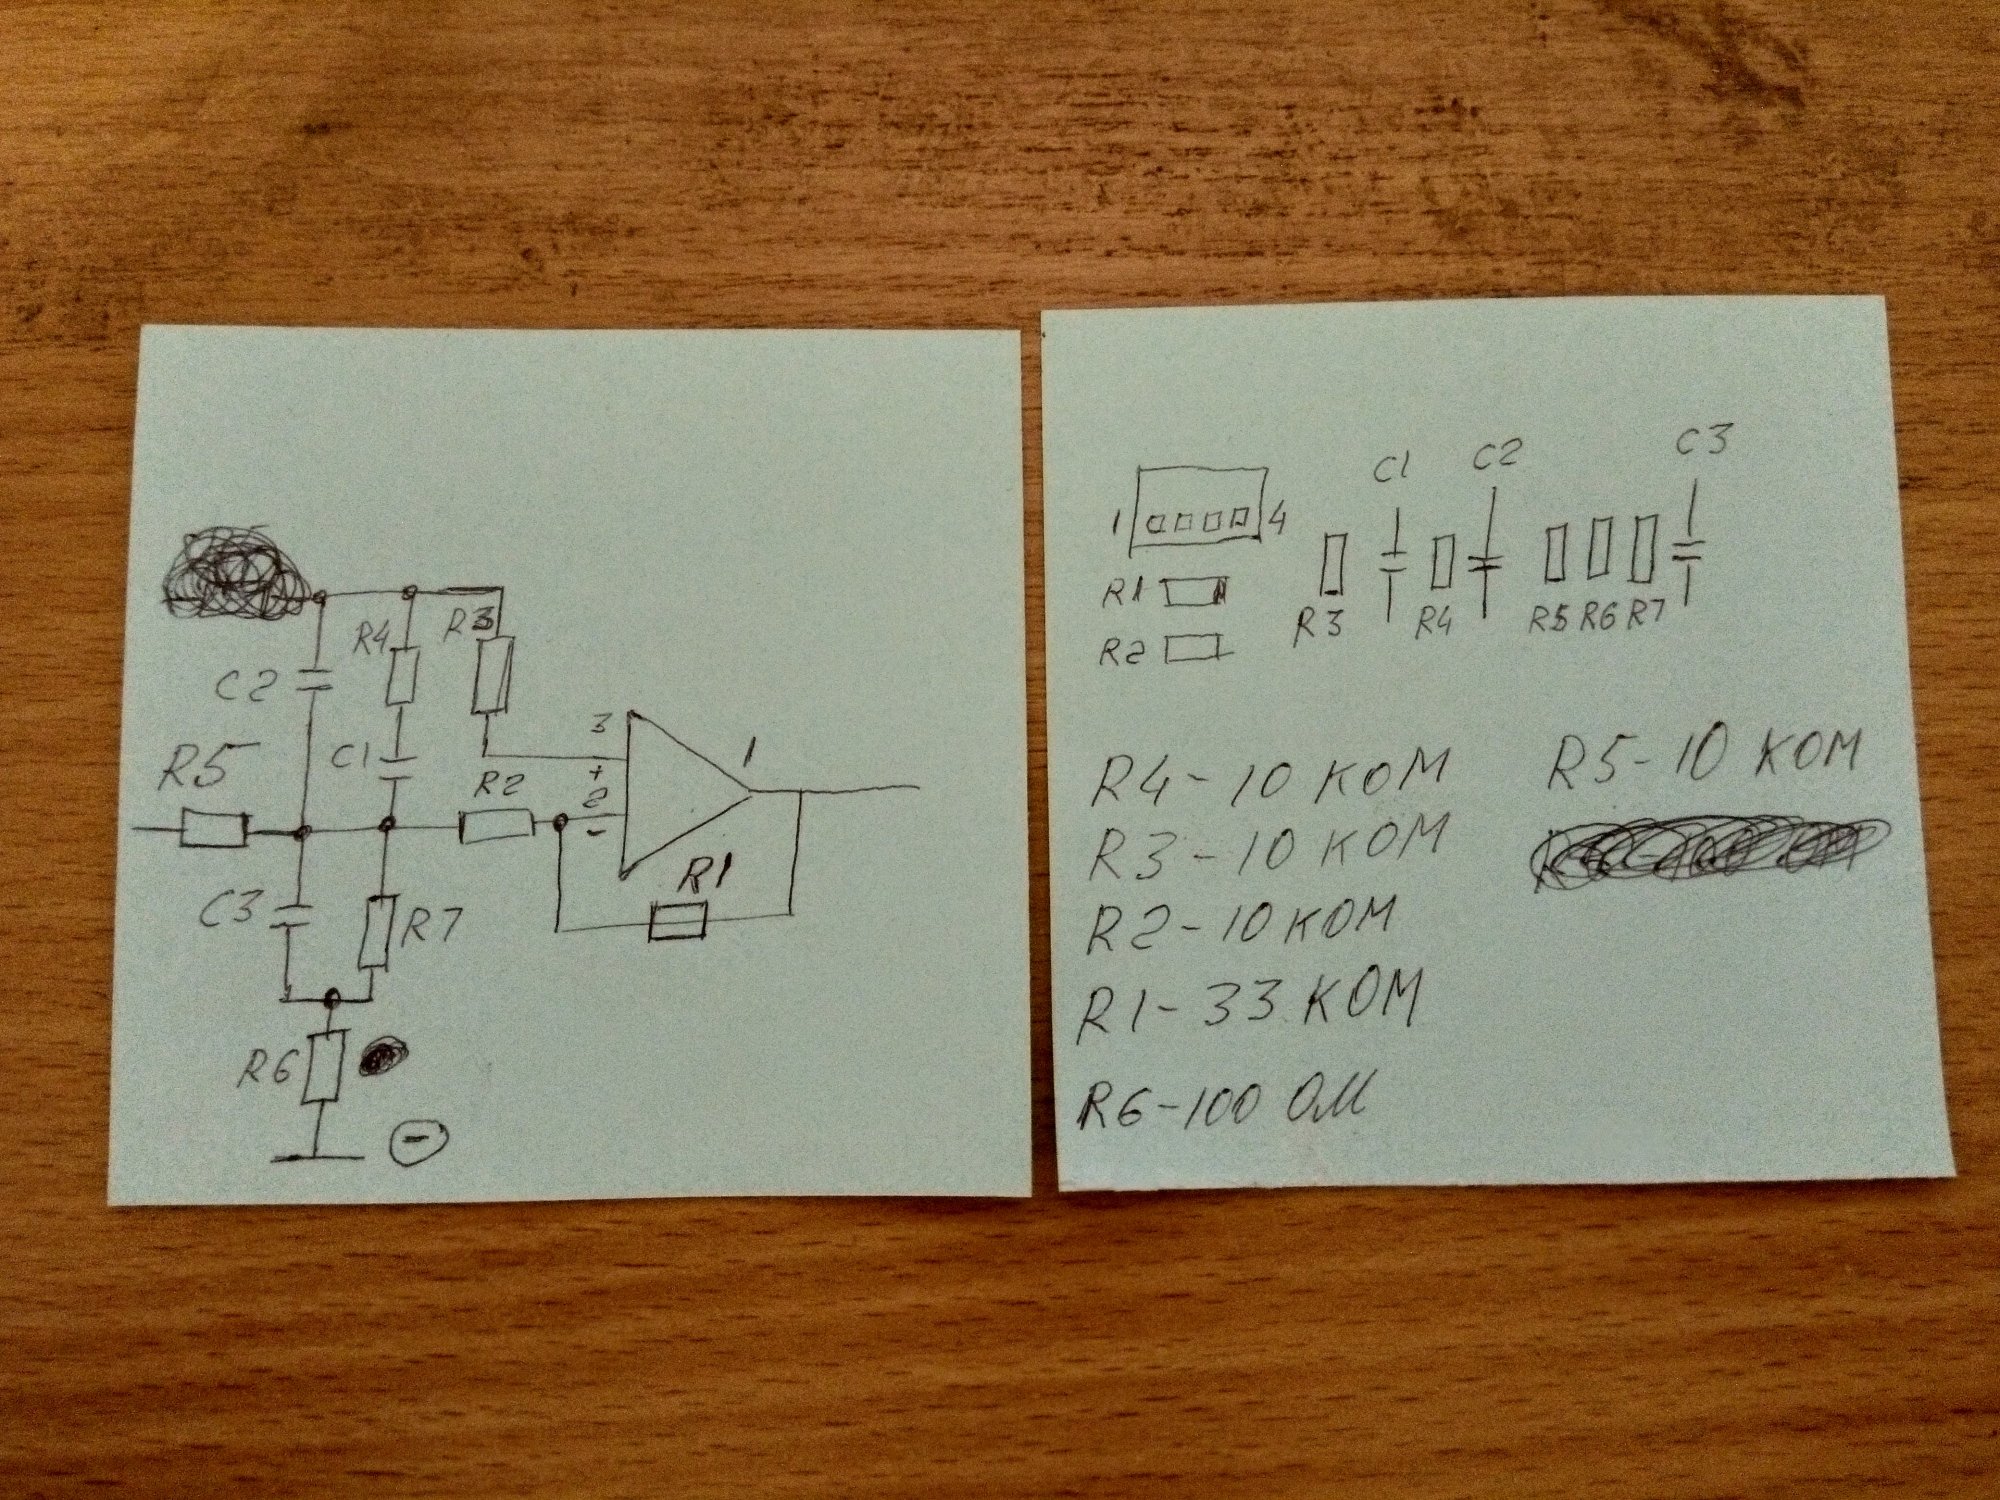 R4
R3
C2
3
1
R5
C1
R2
+
2
-
C3
R7
R1
R6
-
C1
C2
C3
1
4
R1
R3
R4
R5 R6 R7
R2
R4-10 КОМ
R3-10 КОМ
R2-10 КОМ
R1-33 КОМ
R6-100 ОМ
R5-10 КОМ